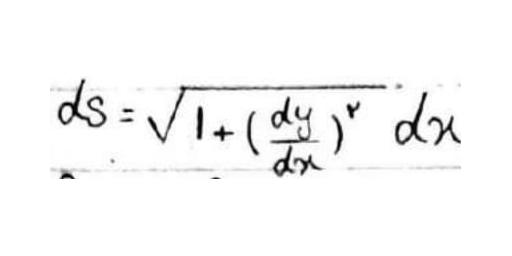 ds = √(1 + (dy/dx)²) dx